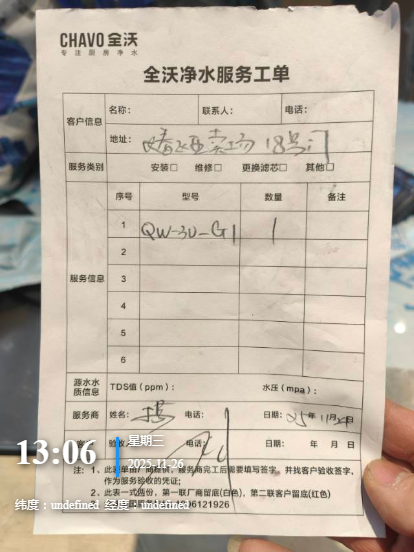 CHAVO 全沃
专注厨房净水
全沃净水服务工单
客户信息 名称： 联系人： 电话：
地址： 18号门
服务类别 安装□ 维修□ 更换滤芯□ 其他□
服务信息 序号 型号 数量 备注
1 QW-3U-G1 1
2
3
4
5
6
源水水质信息 TDS值（ppm）： 水压（mpa）：
服务商 姓名： 电话： 日期：25年11月
验收 电话： 日期： 年 月 日
13:06
星期三
2025-11-26
注：1、此 服务商完工后需要填写签字，并找客户验收签字，
作为服务验收的凭证；
2、此表一式 份，第一联厂商留底(白色)，第二联客户留底(红色)
纬度：undefined 经度：undefined
6121926